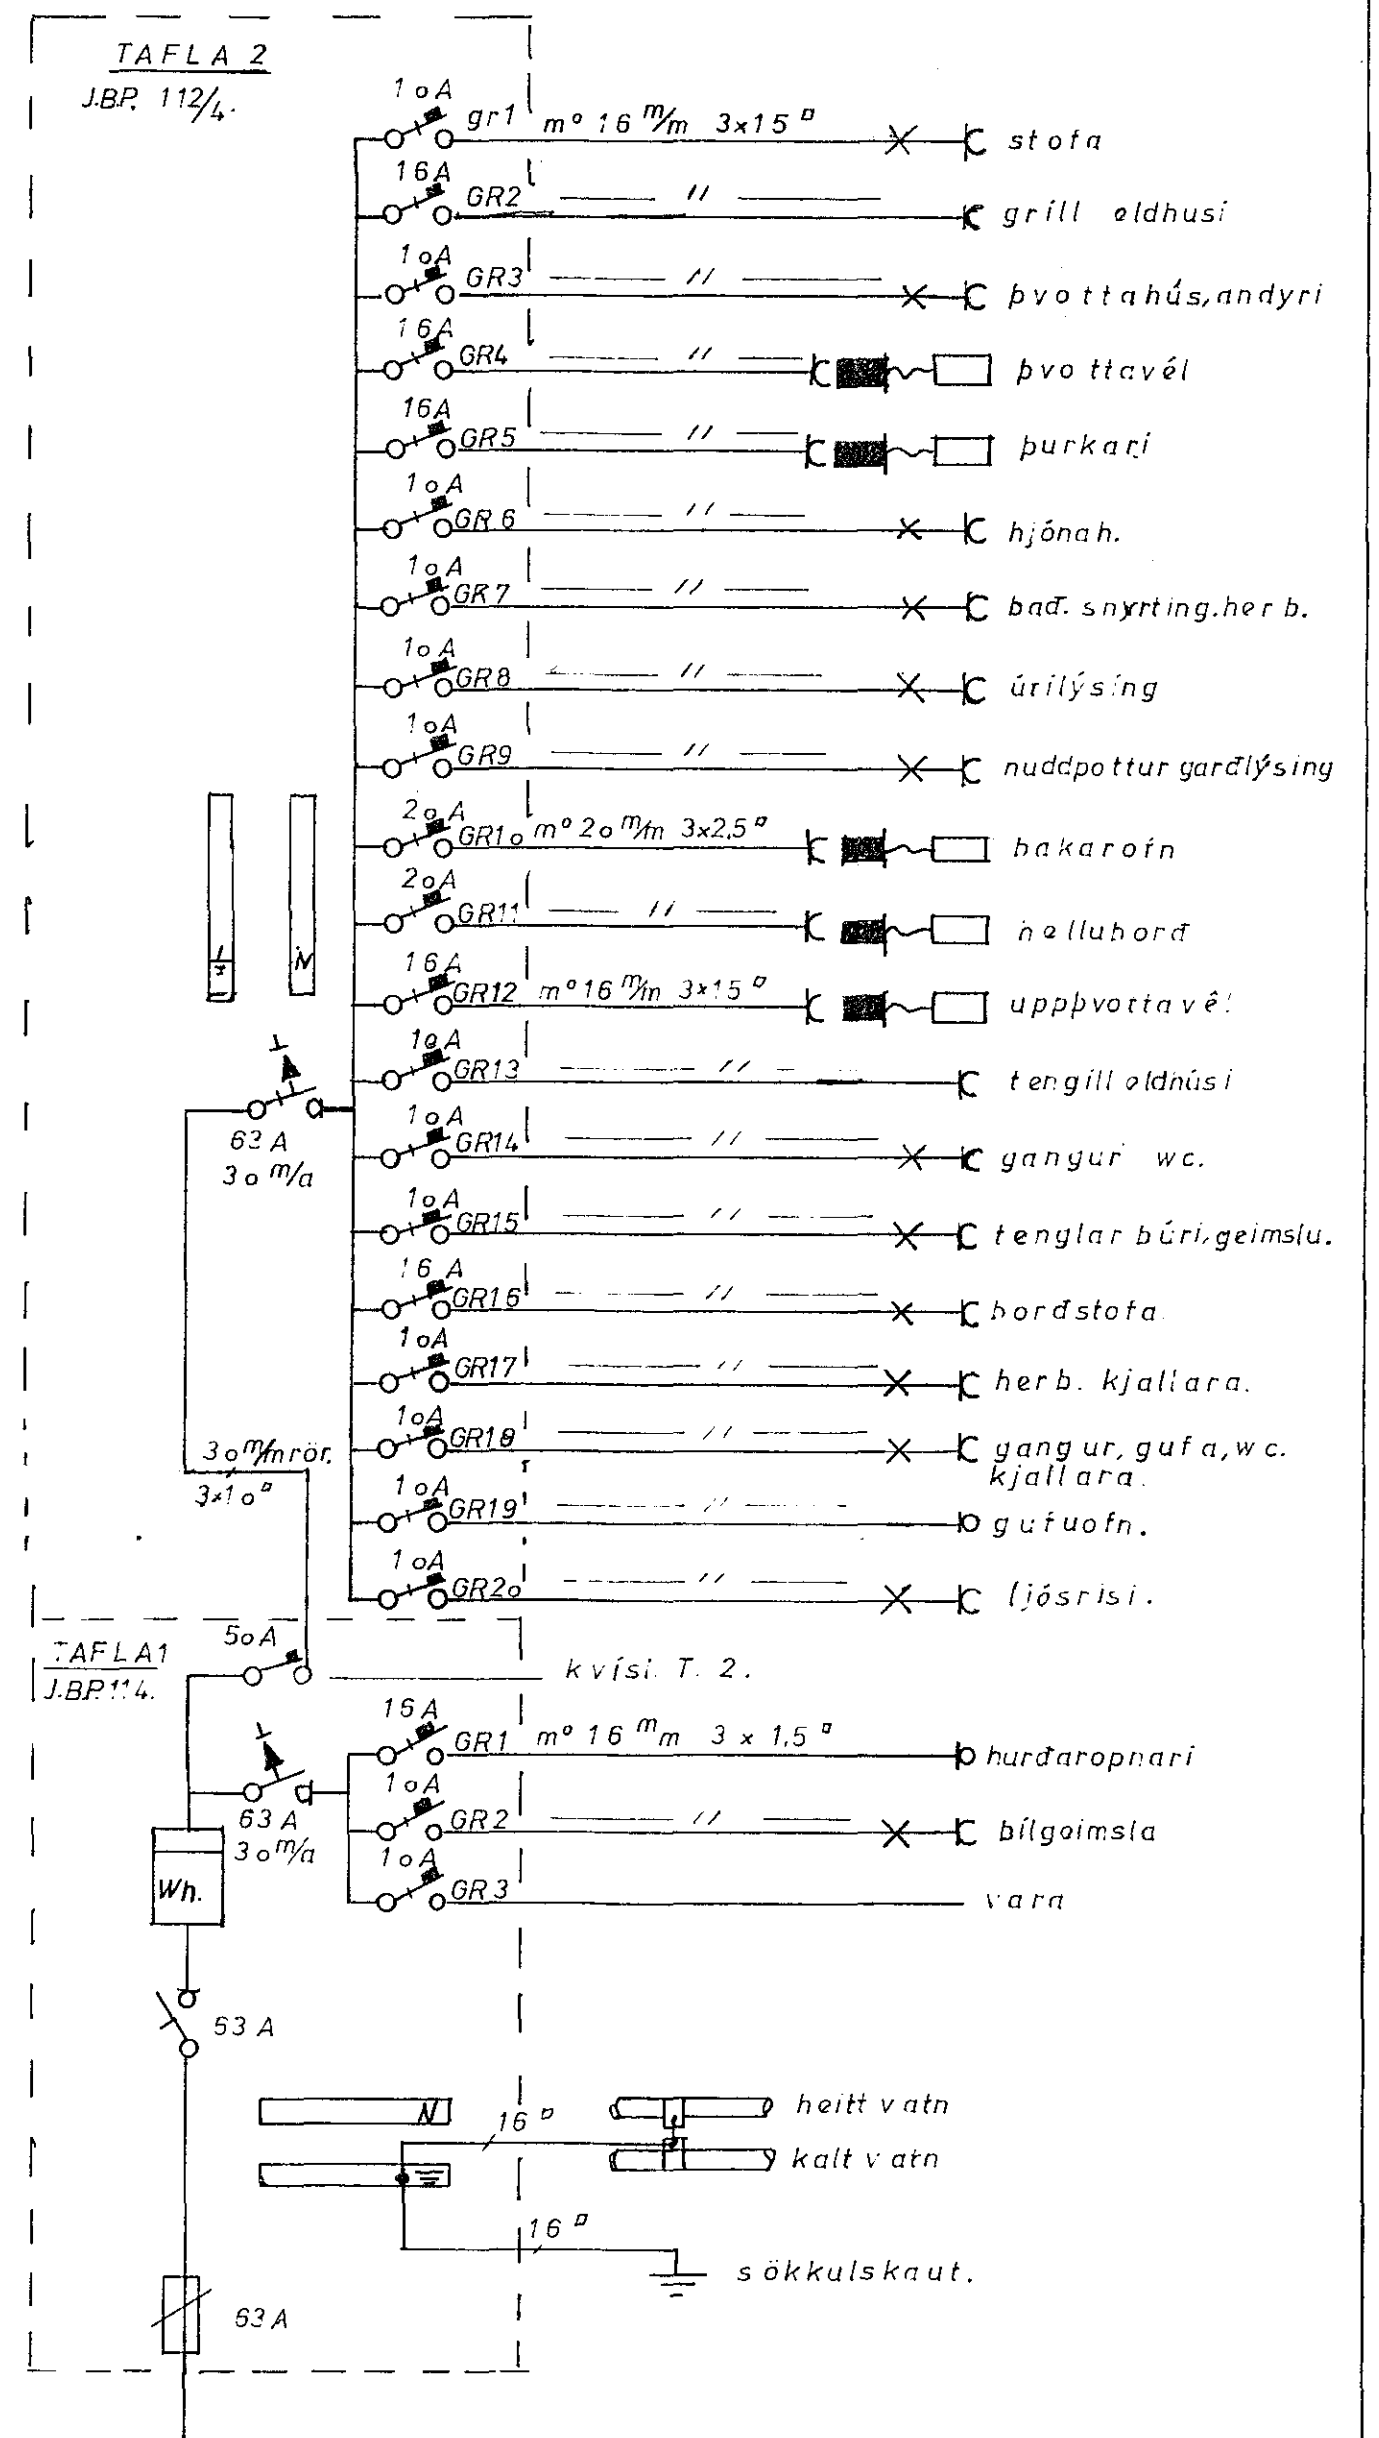 TAFLA 2
J.BP. 112/4.
10A gr1 m° 16 m/m 3x15 ▫ stofa
16A GR2 — // — grill eldhusi
10A GR3 — // — þvottahús, andyri
16A GR4 — // — þvottavél
16A GR5 — // — þurkari
10A GR6 — // — hjónah.
10A GR7 — // — bað. snyrting. herb.
10A GR8 — // — útilýsing
10A GR9 — // — nuddpottur garðlýsing
20A GR10 m° 20 m/m 3x2,5 ▫ bakarofn
20A GR11 — // — helluborð
16A GR12 m° 16 m/m 3x15 ▫ uppþvottavél
10A GR13 — // — tengill eldhúsi
63A
30 m/a
10A GR14 — // — gangur wc.
10A GR15 — // — tenglar búri, geimslu.
16A GR16 — // — borðstofa
10A GR17 — // — herb. kjallara.
10A GR18 — // — gangur, gufa, wc.
kjallara.
30 m/m rör.
3x10 ▫
10A GR19 — // — gufuofn.
10A GR20 — // — ljósrisi.
N
TAFLA 1
J.BP. 114.
50A kvísl T. 2.
16A GR1 m° 16 m m 3 x 1,5 ▫ hurðaropnari
63A
30 m/a
10A GR2 — // — bílgeimsla
10A GR3 vara
Wh.
63A
N 16 ▫ heitt vatn
kalt vatn
16 ▫ sökkulskaut.
63A